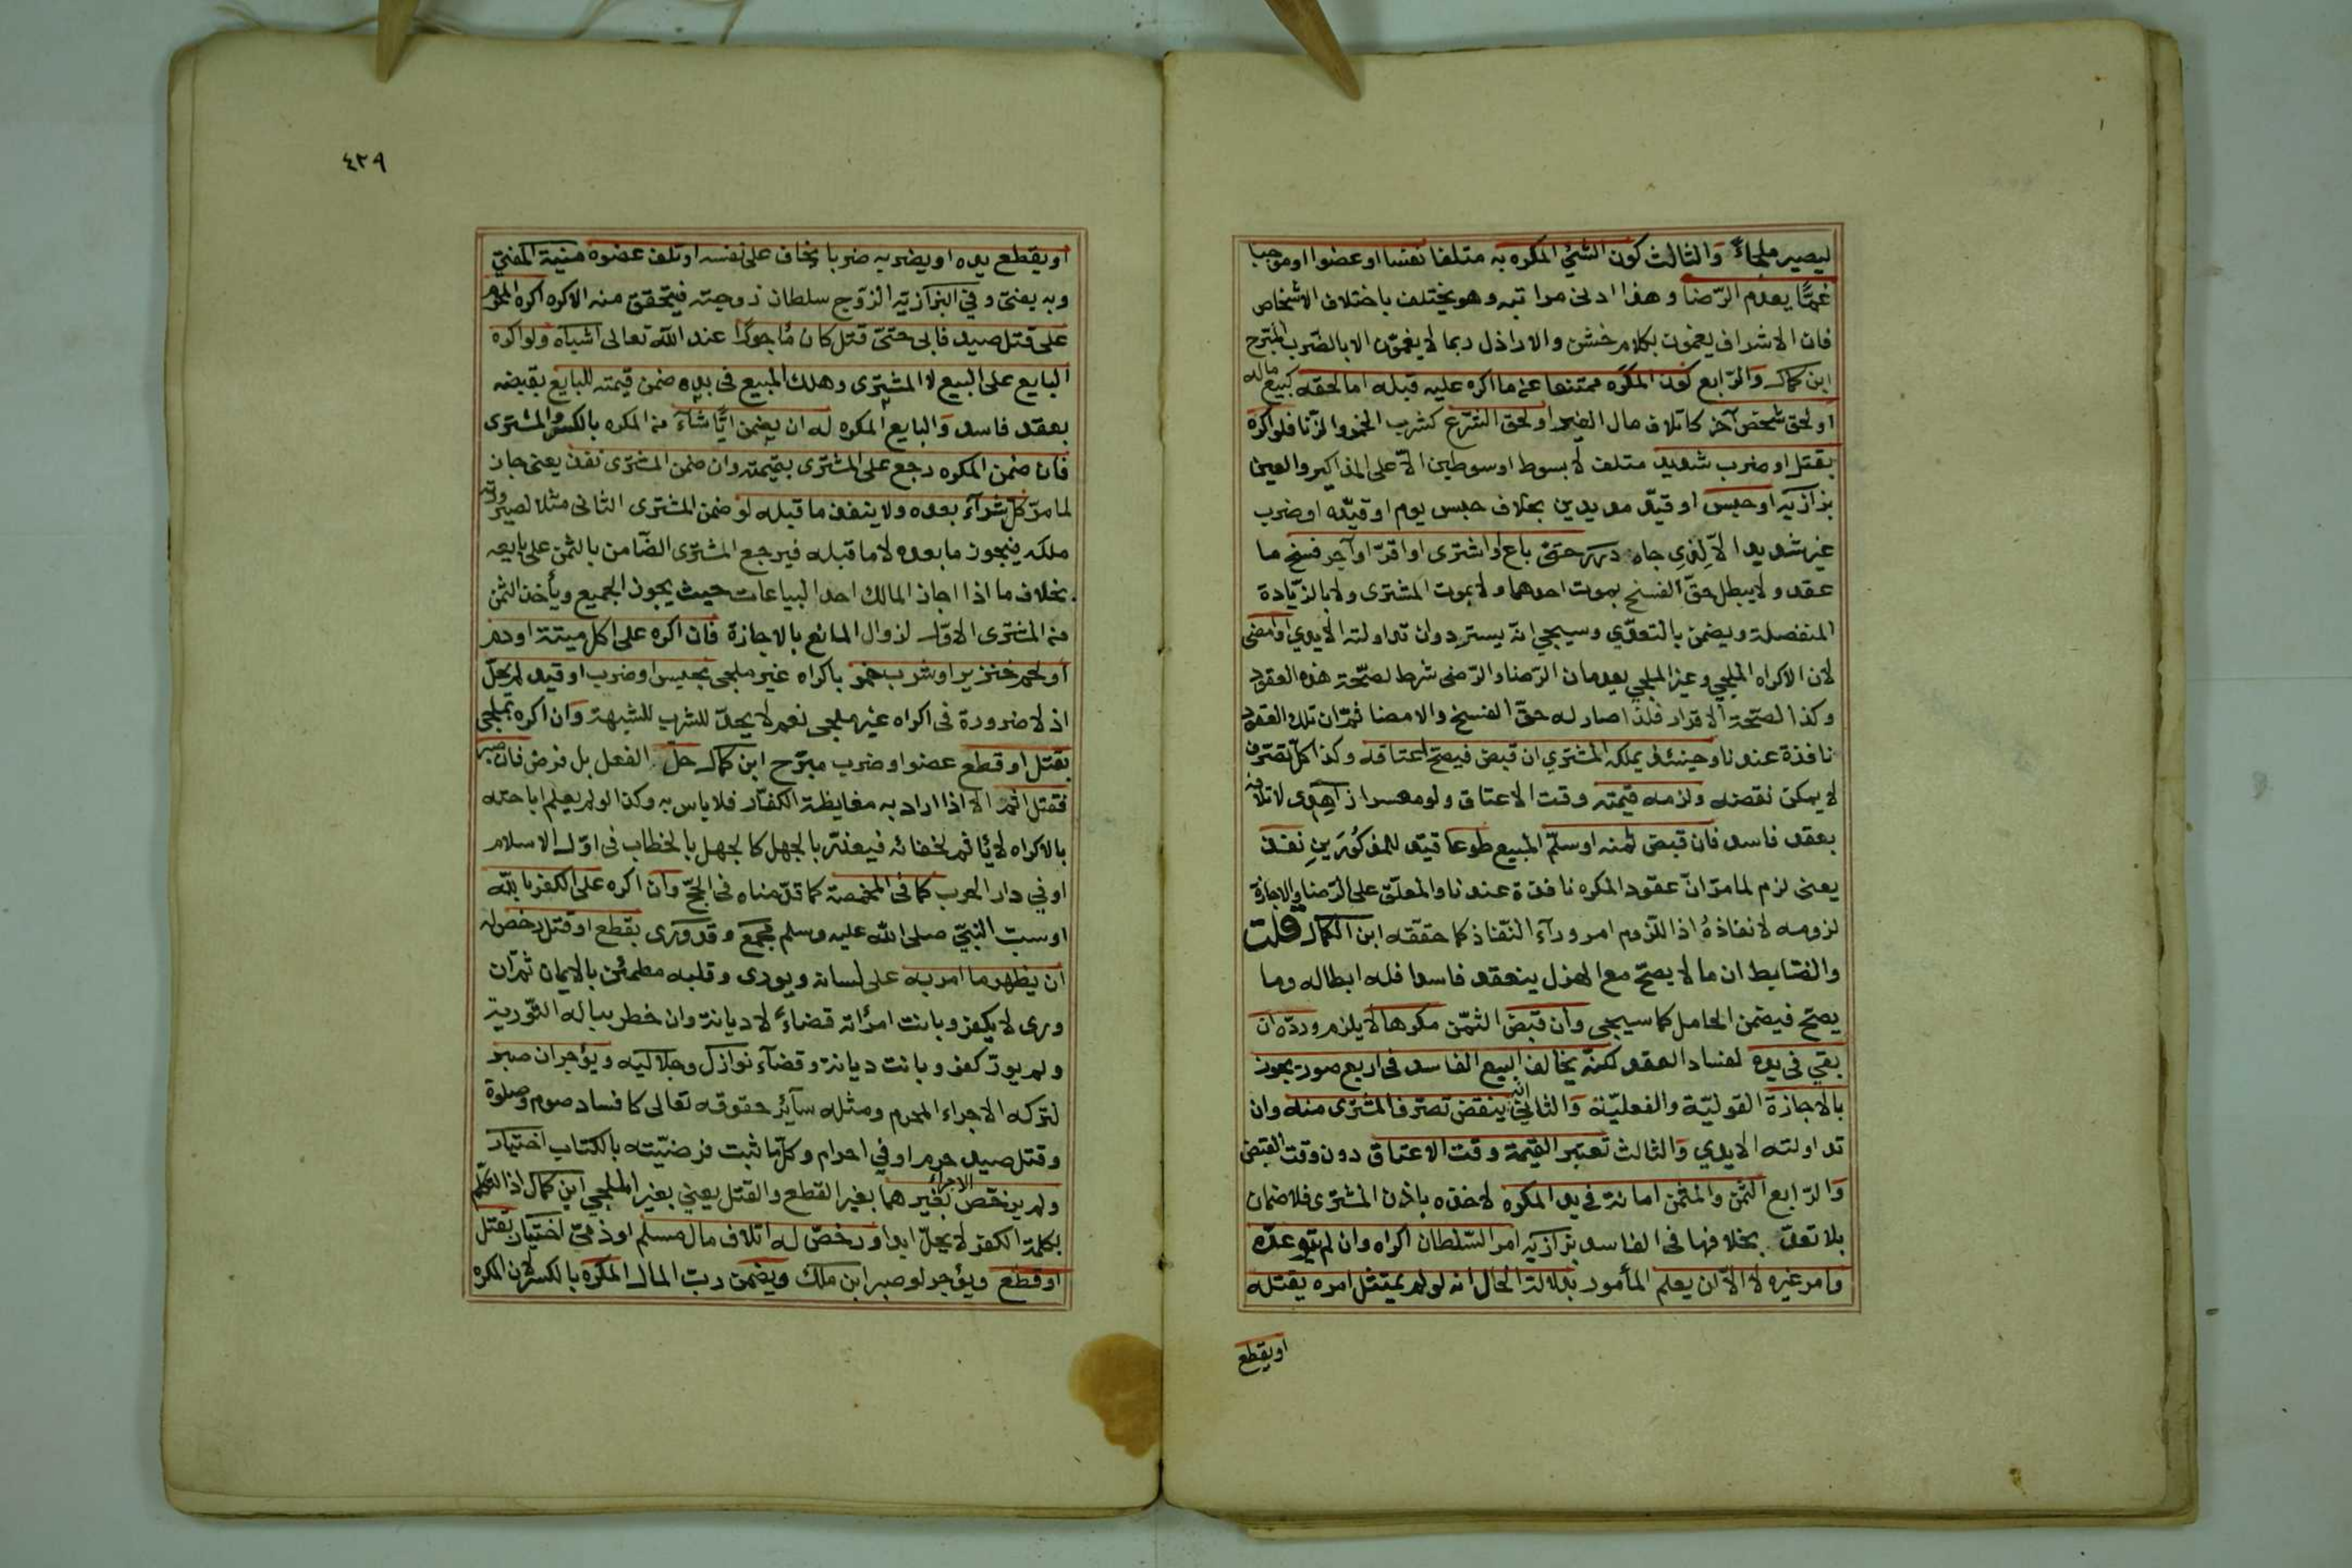 ليصير ملجاءً والثالث كون الشئ المكره به متلفا نفسا او عضوا او موجبا
غمًّا يعدم الرّضا وهذا ادنى مراتبه وهو يختلف باختلاف الاشخاص
فان الاشراف يغمون بكلام خشن والاراذل ربما لا يغمون الا بالضرب المبرّح
ابن كمال والرّابع كون المكرَه ممتنعا عن ما اكره عليه قبله اما لحقه كبيع ماله
او لحق شخص آخر كاتلاف مال الغير او لحق الشّرع كشرب الخمر والزّنا فلو اكره
بقتل او ضرب شديد متلف لا بسوط او سوطين الاّ على المذاكير والعين
بزازيه او حبس او قيد مديدين بخلاف حبس يوم او قيده او ضرب
غير شديد الاّ لِذِي جاه درر حتى باع او اشترى او اقرّ او آجر فسخ ما
عقد ولا يبطل حقّ الفسخ بموت احدهما ولا بموت المشترى ولا بالزّيادة
المنفصلة ويضمن بالتعدّي وسيجي انّه يسترد وان تداولته الايدي او امضى
لان الاكراه الملجي وغير الملجي يعدمان الرّضا والرّضى شرط لصحّة هذه العقود
وكذا لصحّة الاقرار فلذا صار له حقّ الفسخ والامضا ثمّ ان تلك العقود
نافذة عندنا وحينئذ يملكه المشتري ان قبض فيصحّ اعتاقه وكذا كلّ تصرّف
لا يمكن نقضه ولزمه قيمته وقت الاعتاق ولو معسرا زاهدى لاتلافه
بعقد فاسد فان قبض ثمنه او سلّم المبيع طوعا قيد للمذكُورَينِ نفذ
يعنى لزم لما مرّ انّ عقود المكره نافذة عندنا والمعلّق على الرّضا والاجازة
لزومه لا نفاذهُ اذ اللّزوم امر ورآء النّفاذ كما حققه ابن الكمال قلت
والضّابط ان ما لا يصحّ مع الهزل ينعقد فاسدا فله ابطاله وما
يصحّ فيضمن الحامل كما سيجى وان قبض الثمّن مكرها لا يلزم وردّه ان
بقي فى يده لفساد العقد لكنّه يخالف البيع الفاسد فى اربع صور يجوز
بالاجازة القوليّة والفعليّة والثاني انه ينقض تصرّف المشترى منه وان
تداولته الايدي والثالث تعتبر القيمة وقت الاعتاق دون وقت القبض
والرّابع الثمن والمثمن امانة فى يد المكره لاخذه باذن المشترى فلا ضمان
بلا تعدّ بخلافها فى الفاسد بزازيه امر السّلطان اكراه وان لم يتوعده
وامر غيره لا الاّ ان يعلم المأمور بدلالة الحال انه لو لم يمتثل امره يقتله
او يقطع
٤٢٩
او يقطع يده او يضربه ضربا يخاف على نفسه او تلف عضوه منية المفتي
وبه يفتى وفي البزازية الزّوج سلطان زوجته فيتحقق منه الاكره اكره المحرم
على قتل صيد فابى حتىّ قتل كان مأجورًا عند الله تعالى اشباه ولو اكره
البايع على البيع لا المشترى وهلك المبيع فى يده ضمن قيمته للبايع بقبضه
بعقد فاسد والبايع المكره له ان يضمن ايًّا شاء من المكره بالكسر والمشترى
فان ضمن المكره رجع على المشترى بقيمته وان ضمن المشترى نفذ يعنى جاز
لما مرّ كلّ شرآء بعده ولا ينفذ ما قبله لو ضمن المشترى الثانى مثلا لصيرورته
ملكه فيجوز ما بعده لا ما قبله فيرجع المشترى الضّامن بالثمن على بايعه
بخلاف ما اذا اجاز المالك احد البياعات حيث يجوز الجميع ويأخذ الثمن
من المشترى الاوّل لزوال المانع بالاجازة فان اكره على اكل ميتة او دم
او لحم خنزير او شرب خمر باكراه غير ملجى بحبس او ضرب او قيد لم يحلّ
اذ لا ضرورة فى اكراه غير ملجى نعم لا يحدّ للشرب للشبهة وان اكره بملجى
بقتل او قطع عضو او ضرب مبرّح ابن كمال حلّ الفعل بل فرض فان صبر
فقتل اثم الا اذا اراد به مغايظة الكفّار فلا باس به وكذا لو لم يعلم اباحته
بالاكراه لا يأثم لخفائه فيعذر بالجهل كالجهل بالخطاب فى اوّل الاسلام
او في دار الحرب كما فى المخمصة كما قدّمناه فى الحجّ وان اكره على الكفر بالله
او سبّ النبيّ صلى الله عليه وسلم مجمع وقدورى بقطع او قتل رخص له
ان يظهر ما امر به على لسانه ويورى وقلبه مطمئن بالايمان ثمّ ان
ورى لا يكفر وبانت امرأته قضاءً لا ديانة وان خطر بباله التّورية
ولم يورّ كفر وبانت ديانة وقضآء نوازل وجلاليه ويؤجر ان صبر
لتركه الاجراء المحرم ومثله سآئر حقوقه تعالى كافساد صوم وصلوة
وقتل صيد حرم او في احرام وكلّ ما ثبت فرضيّته بالكتاب اختيار
ولم يرخص الاجراء بغيرهما بغير القطع والقتل يعني بغير الملجي ابن كمال اذ التكلّم
بكلمة الكفر لا يحلّ ابدا ورخصّ له اتلاف مال مسلم او ذميّ اختيار بقتل
او قطع ويؤجر لو صبر ابن ملك ويضمن ربّ المال المكره بالكسر لان المكره